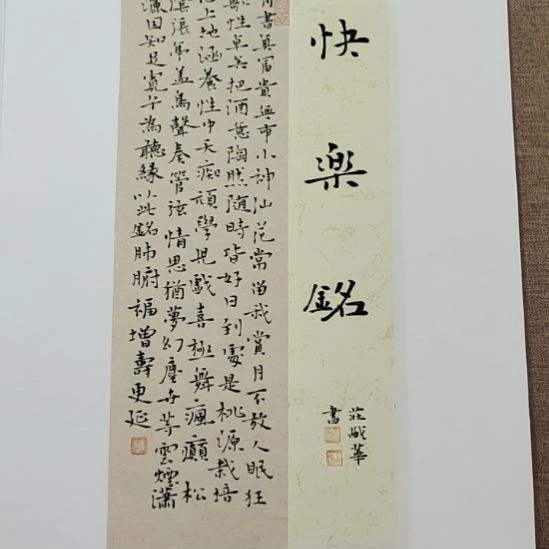 快樂銘
莊華
書
書真富貴無市小神仙花常留我賞月不放人眠狂
把酒意陶然隨時皆好日到處是桃源栽培
心上地涵養性中天痴頑學兒戲喜極舞瘋癲松
張帘蓋鳥聲奏管弦情思猶夢幻塵世等雲煙瀟
因知足寬平為聽緣以此銘肺腑福增壽更延